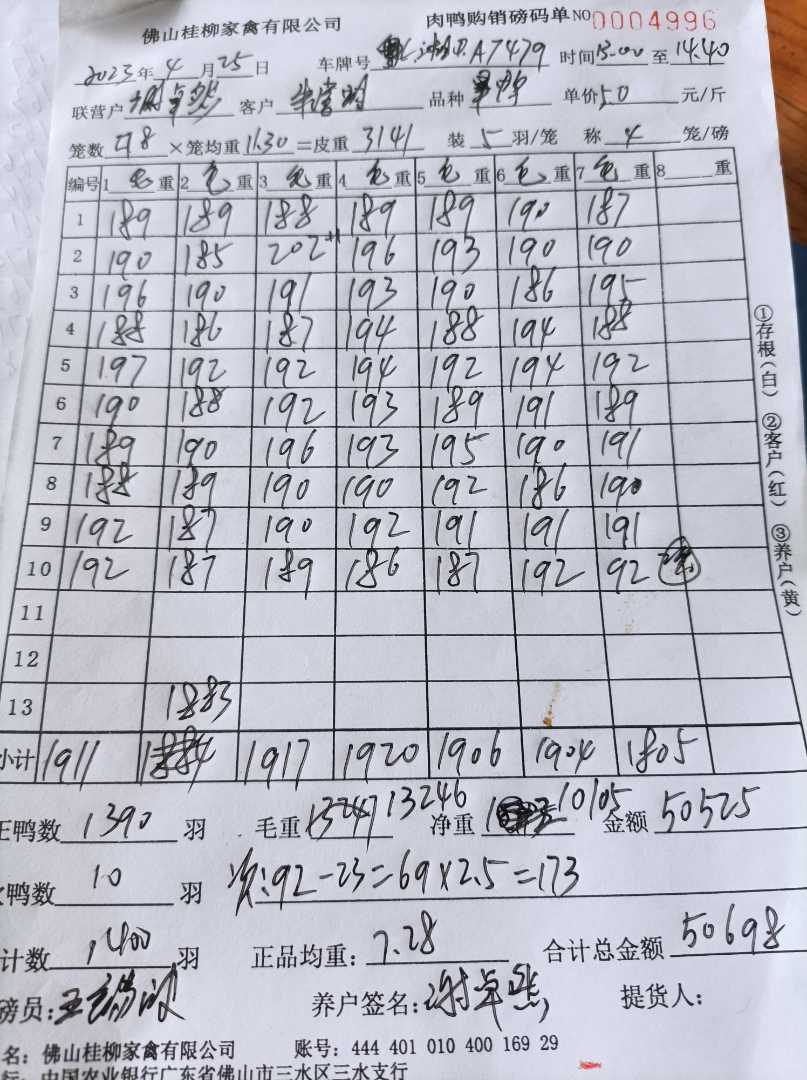 佛山桂柳家禽有限公司 肉鸭购销磅码单 NO 0004996
2023年4月25日 车牌号 A7479 时间13:00至14:40
联营户 谢卓然 客户 品种 单价5.0元/斤
笼数 278 ×笼均重 11.30 =皮重 3141 装 5 羽/笼 称 4 笼/磅
编号 1 毛重 2 毛重 3 毛重 4 毛重 5 毛重 6 毛重 7 毛重 8 重
1 189 189 188 189 189 190 187
2 190 185 202 196 193 190 190
3 196 190 191 193 190 186 195
4 188 186 187 194 188 194 188
5 197 192 192 194 192 194 192
6 190 188 192 193 189 191 189
7 189 190 196 193 195 190 191
8 188 189 190 190 192 186 190
9 192 187 190 192 191 191 191
10 192 187 189 186 187 192 92
11
12
13 1883
小计 1911 1917 1920 1906 1904 1805
正鸭数 1390 羽 毛重 13246 净重 10105 金额 50525
次鸭数 10 羽 次:92-23=69×2.5=173
计数 1400 羽 正品均重: 7.28 合计总金额 50698
磅员: 养户签名: 谢卓然 提货人:
名: 佛山桂柳家禽有限公司 账号: 444 401 010 400 169 29
行: 中国农业银行广东省佛山市三水区三水支行
①存根(白) ②客户(红) ③养户(黄)